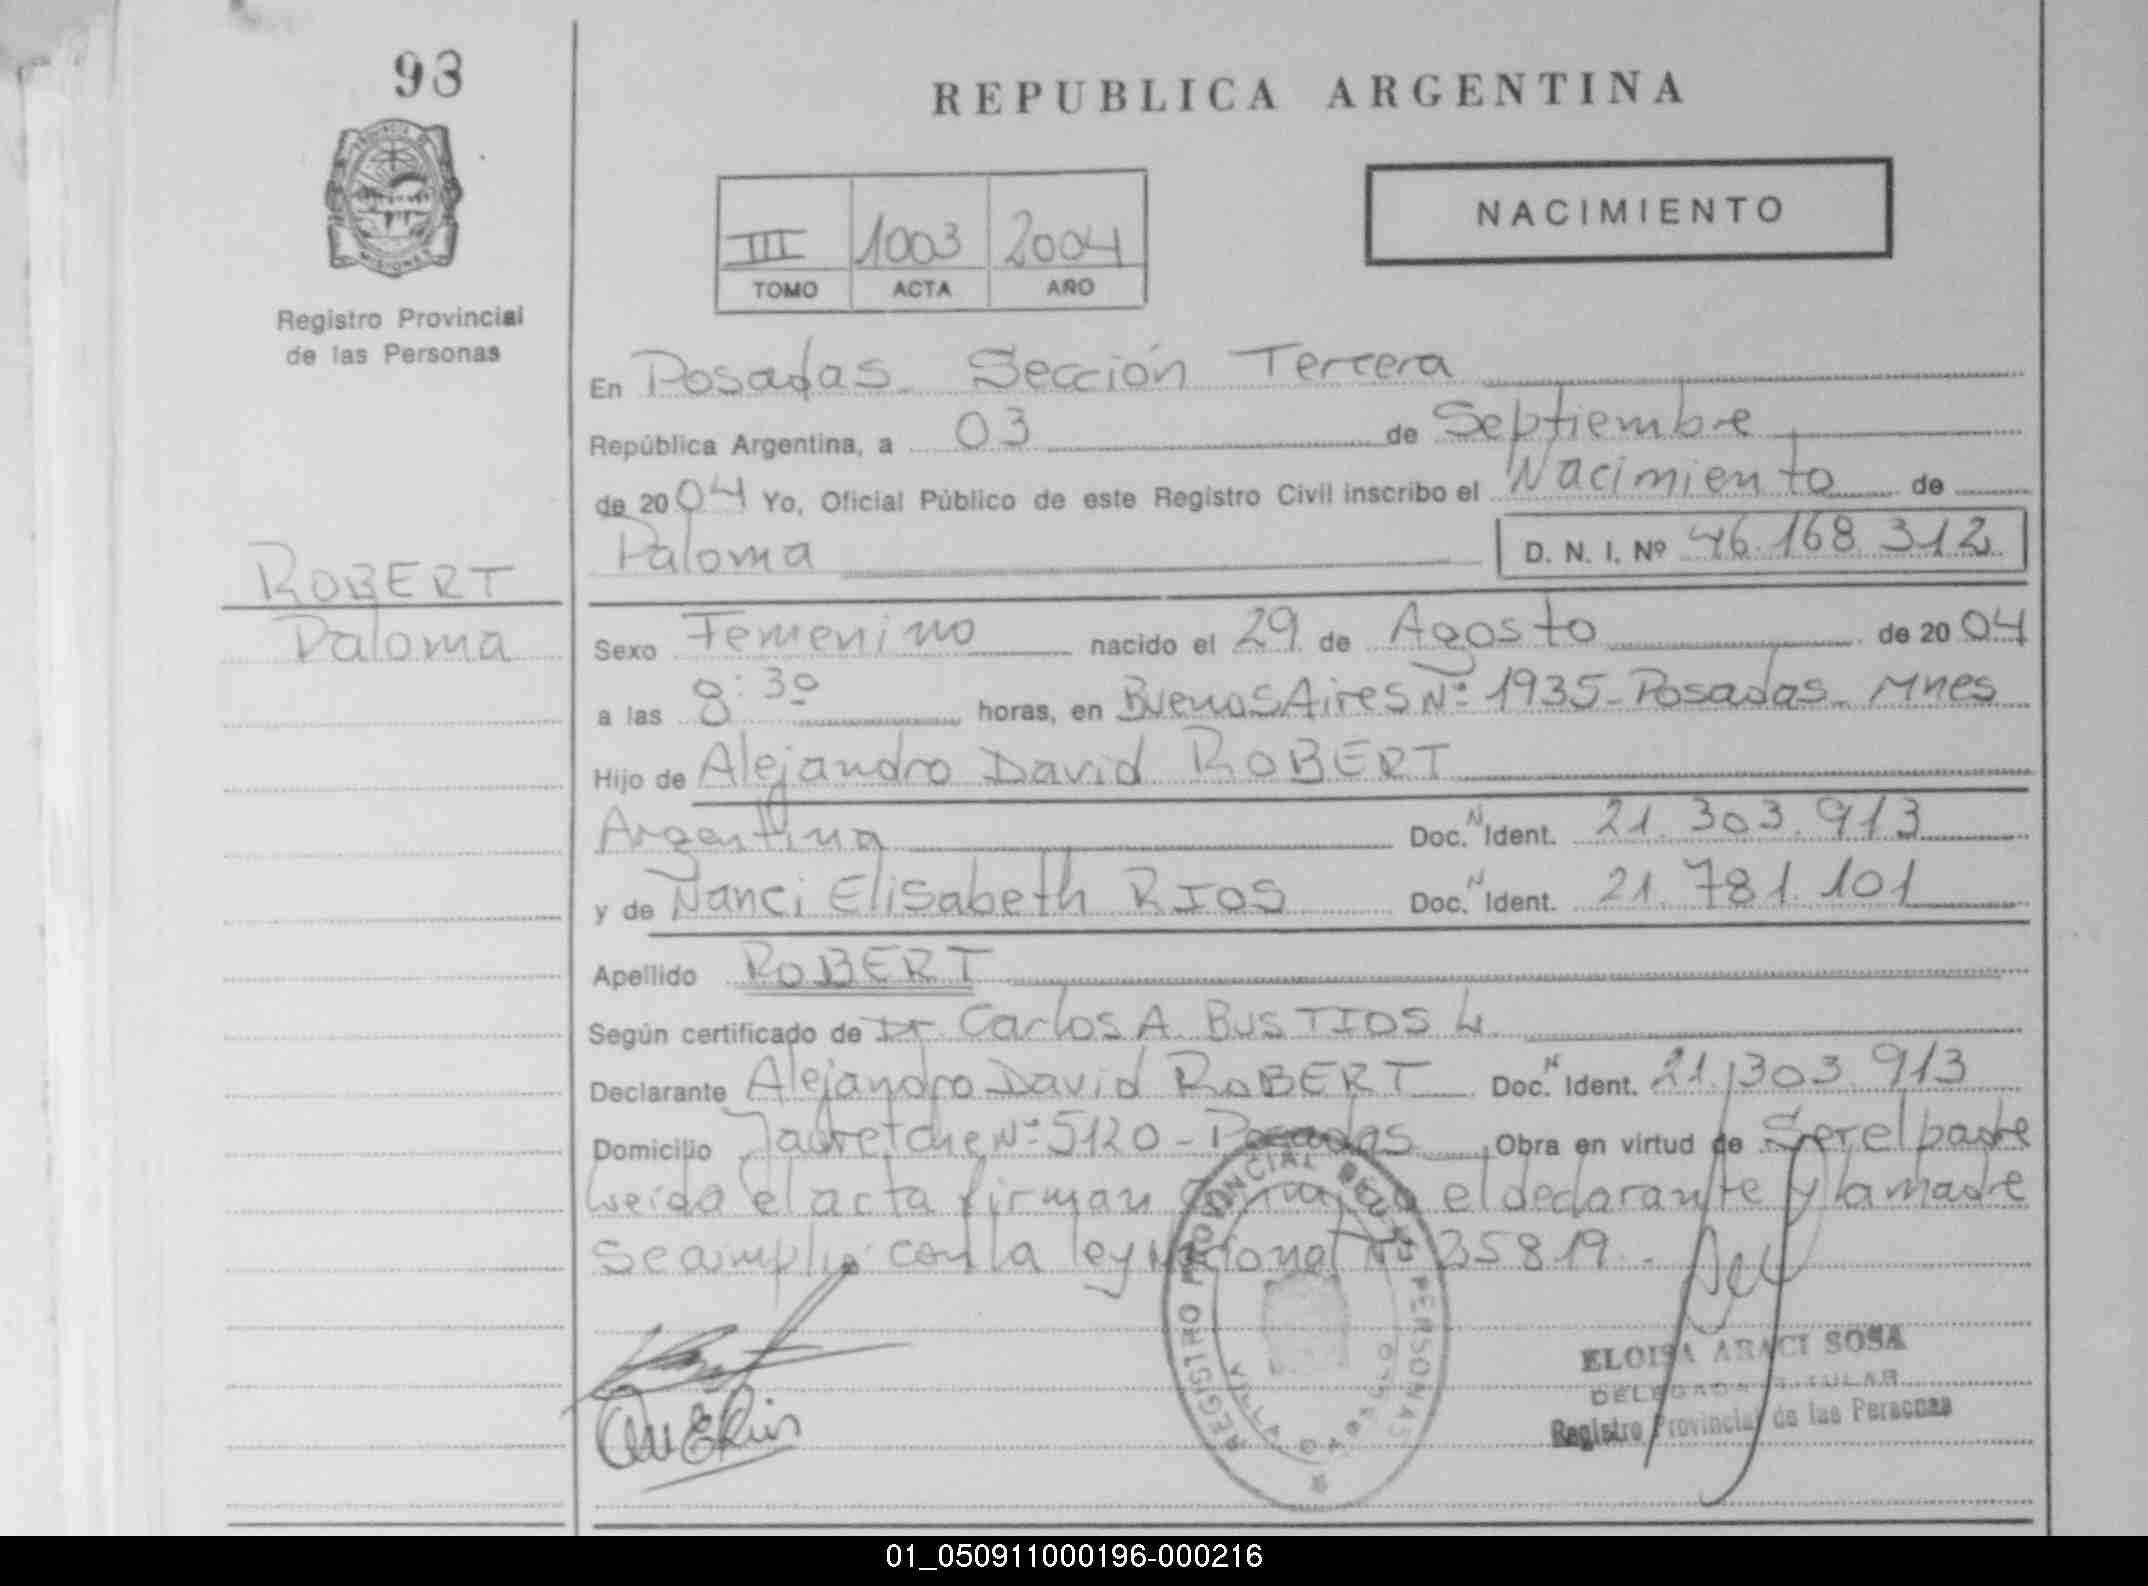 93
REPUBLICA ARGENTINA
PROVINCIA DE
MISIONES
NACIMIENTO
III 1003 2004
TOMO ACTA AÑO
Registro Provincial
de las Personas
En Posadas - Sección Tercera
República Argentina, a 03 de Septiembre
de 2004 Yo, Oficial Público de este Registro Civil inscribo el Nacimiento de
Paloma D. N. I. Nº 46.168.312
ROBERT
Paloma
Sexo Femenino nacido el 29 de Agosto de 2004
a las 8:30 horas, en Buenos Aires Nº 1935 - Posadas - Mnes
Hijo de Alejandro David ROBERT
Argentina Doc. N Ident. 21.303.913
y de Nanci Elisabeth RIOS Doc. N Ident. 21.781.101
Apellido ROBERT
Según certificado de Dr. Carlos A. BUSTIOS L.
Declarante Alejandro David ROBERT Doc. N Ident. 21.303.913
Domicilio Jauretche Nº 5120 - Posadas Obra en virtud de Ser el padre
Leida el acta firman el declarante y la madre
Se cumplio con la ley Nacional Nº 25819.-
REGISTRO PROVINCIAL DE LAS PERSONAS
ELOISA ARACI SOSA
DELEGADA TITULAR
Registro Provincial de las Personas
01_050911000196-000216